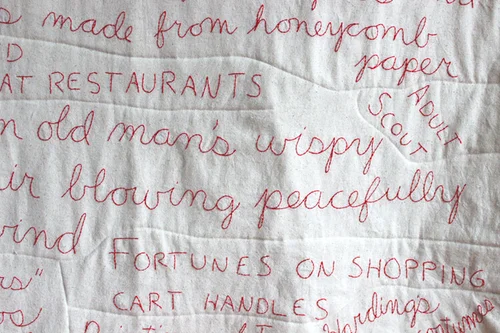 s made from honeycomb
paper
D
AT RESTAURANTS
ADULT
SCOUT
n old man's wispy
ir blowing peacefully
wind
FORTUNES ON SHOPPING
CART HANDLES
rs"
Hardings